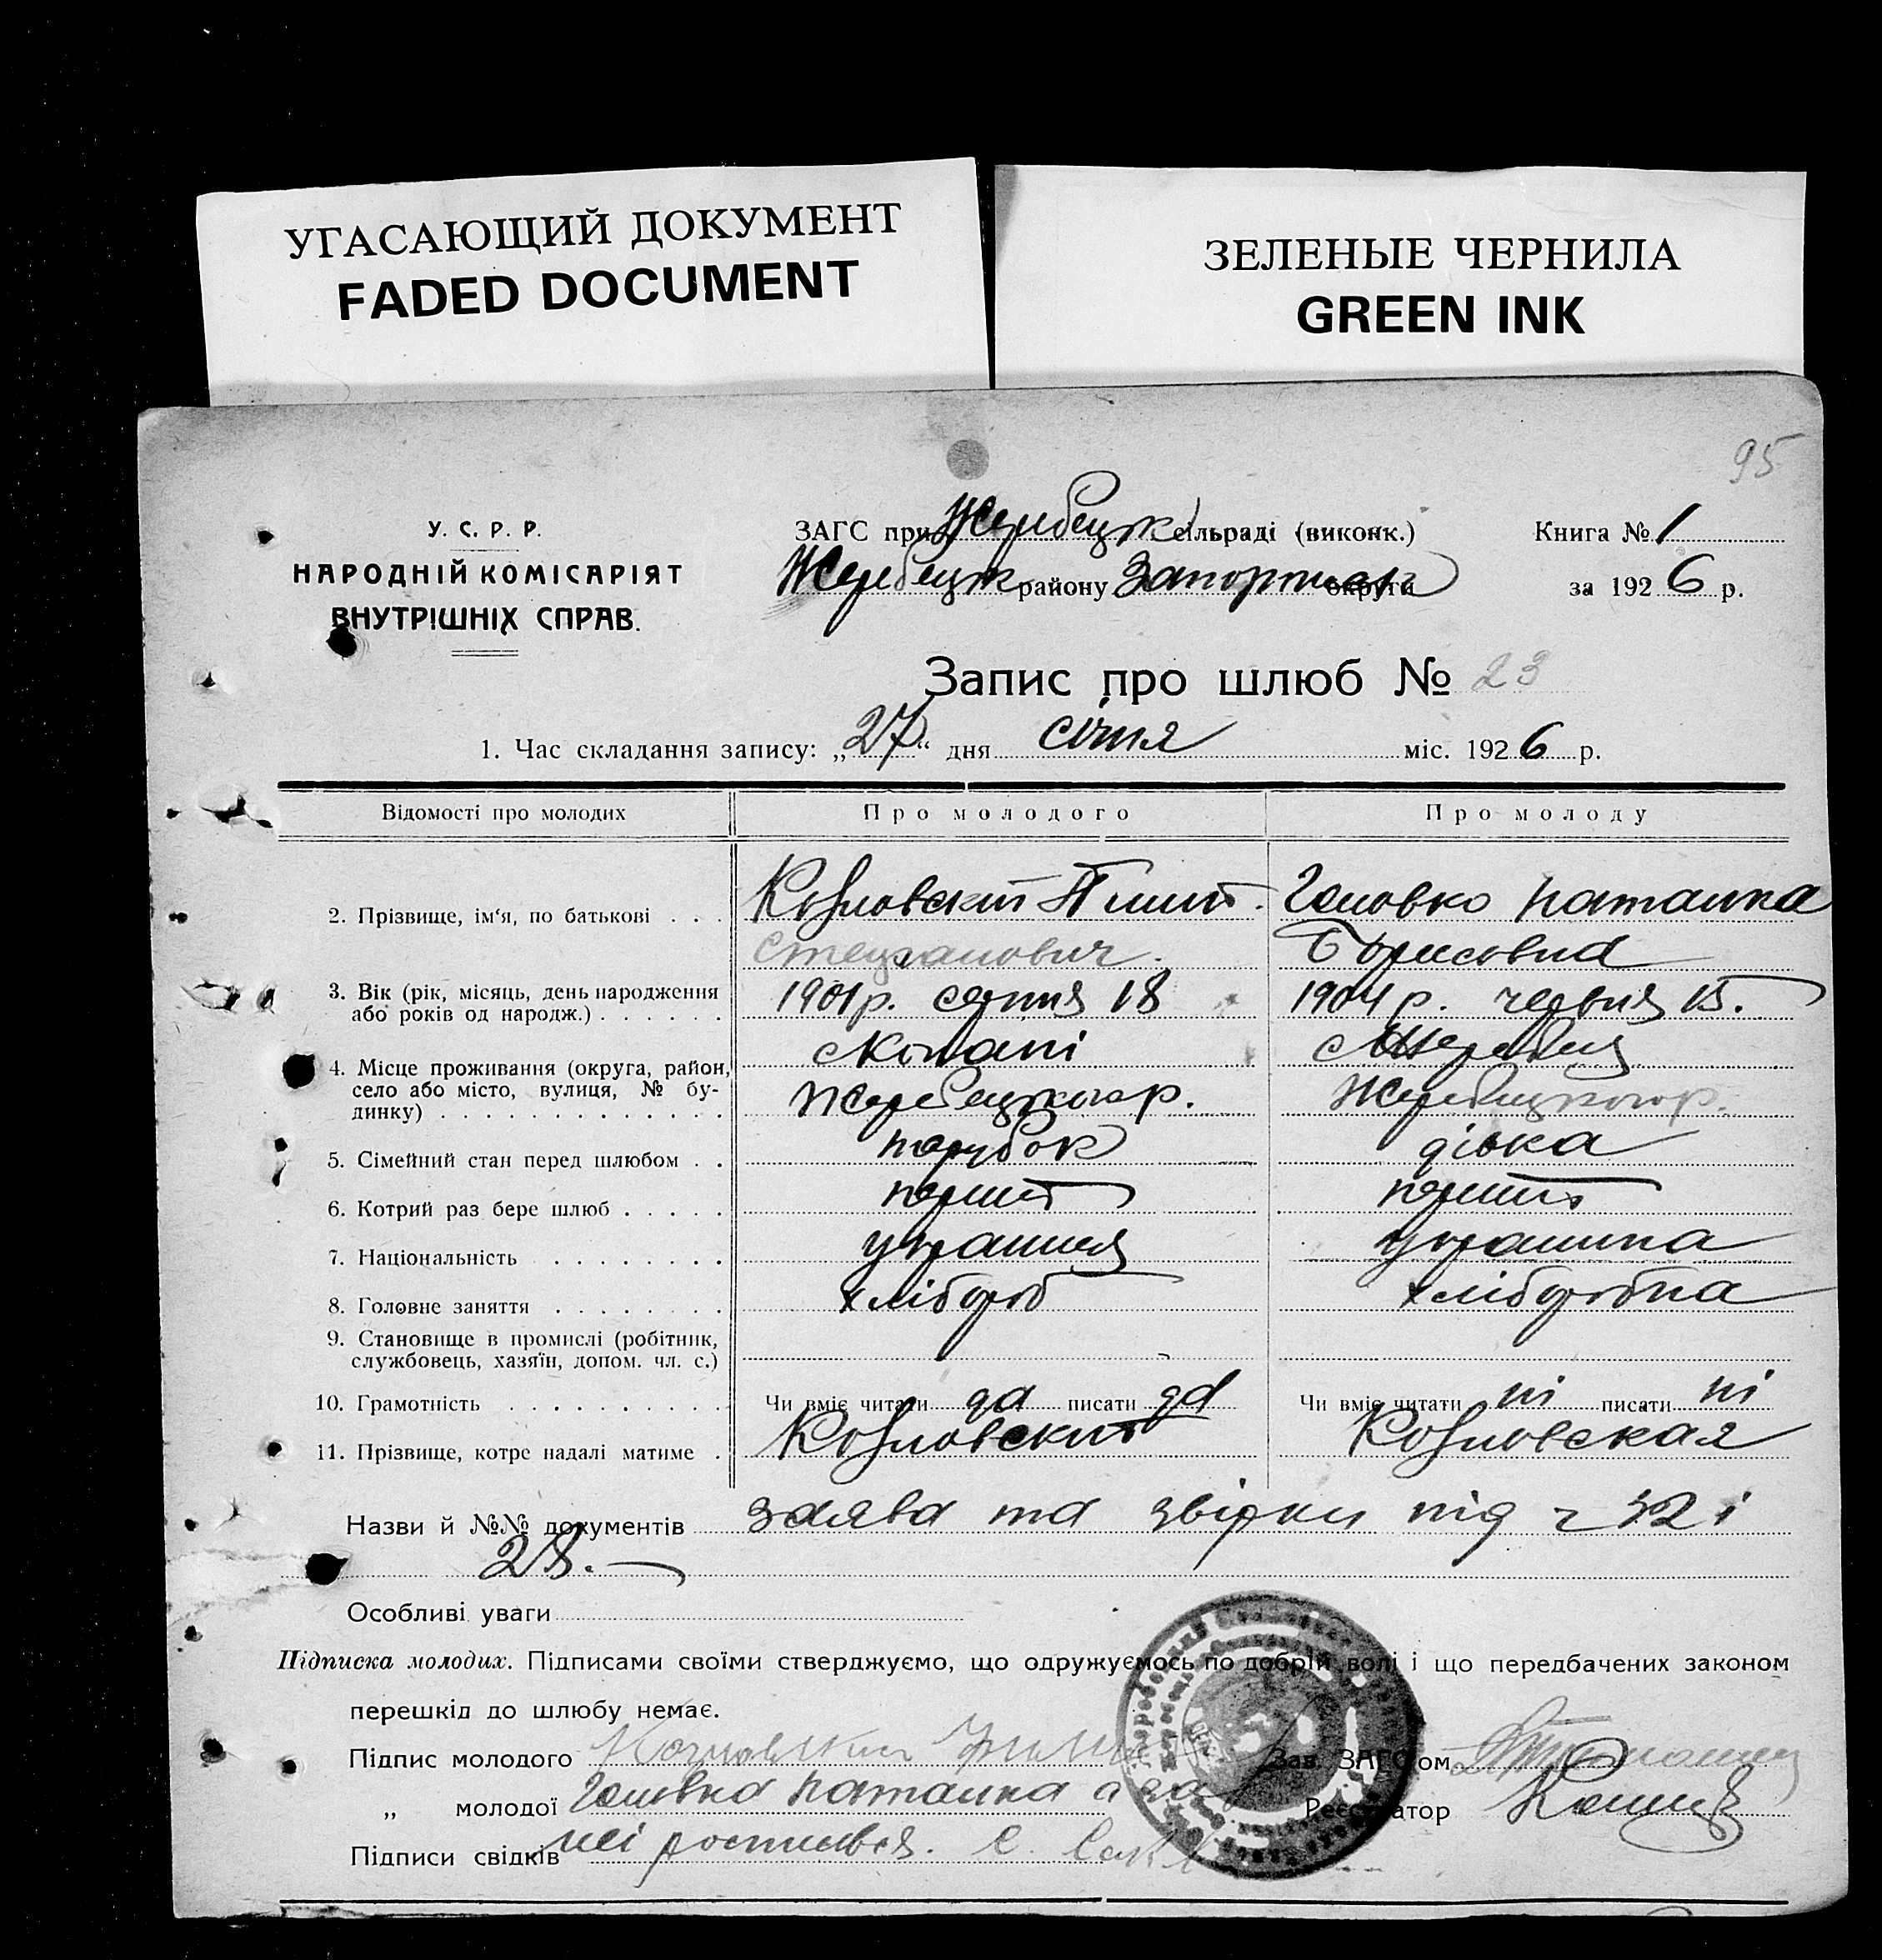 УГАСАЮЩИЙ ДОКУМЕНТ
FADED DOCUMENT
ЗЕЛЕНЫЕ ЧЕРНИЛА
GREEN INK
95
У. С. Р. Р.
НАРОДНІЙ КОМІСАРІЯТ
ВНУТРІШНІХ СПРАВ.
ЗАГС при Жеребецькі сільраді (виконк.)
Книга № 1
Жеребецьк району Запоріжськ округи
за 1926 р.
Запис про шлюб № 23
1. Час складання запису: „27“ дня січня міс. 1926 р.
Відомості про молодих
Про молодого
Про молоду
2. Прізвище, ім‘я, по батькові . . .
Козловский
Головко Наталка
Стецханович.
Борисовна
3. Вік (рік, місяць, день народження
або років од народж.) . . . . . .
1901 р. серпня 18
1904 р. червня 15.
4. Місце проживання (округа, район,
село або місто, вулиця, № бу-
динку) . . . . . . . . . . . . .
с Копані
с Жеребець
Жеребецького р.
Жеребецького р.
5. Сімейний стан перед шлюбом . .
парубок
дівка
6. Котрий раз бере шлюб . . . . .
перший
перший
7. Національність . . . . . . . .
українець
українка
8. Головне заняття . . . . . . . .
хлібороб
хліборобка
9. Становище в промислі (робітник,
службовець, хазяїн, допом. чл. с.)
10. Грамотність . . . . . . . . . .
Чи вміє читати да писати да
Чи вміє читати ні писати ні
11. Прізвище, котре надалі матиме .
Козловский
Козловская
Назви й №№ документів заява та звірки під ч 32 і
28.
Особливі уваги
Підписка молодих. Підписами своїми стверджуємо, що одружуємось по добрій волі і що передбачених законом
перешкід до шлюбу немає.
Підпис молодого Козловский
Зав. ЗАГС'ом
„ молодої Головко Наталка а за
Реєстратор
Підписи свідків неі росписався. С.